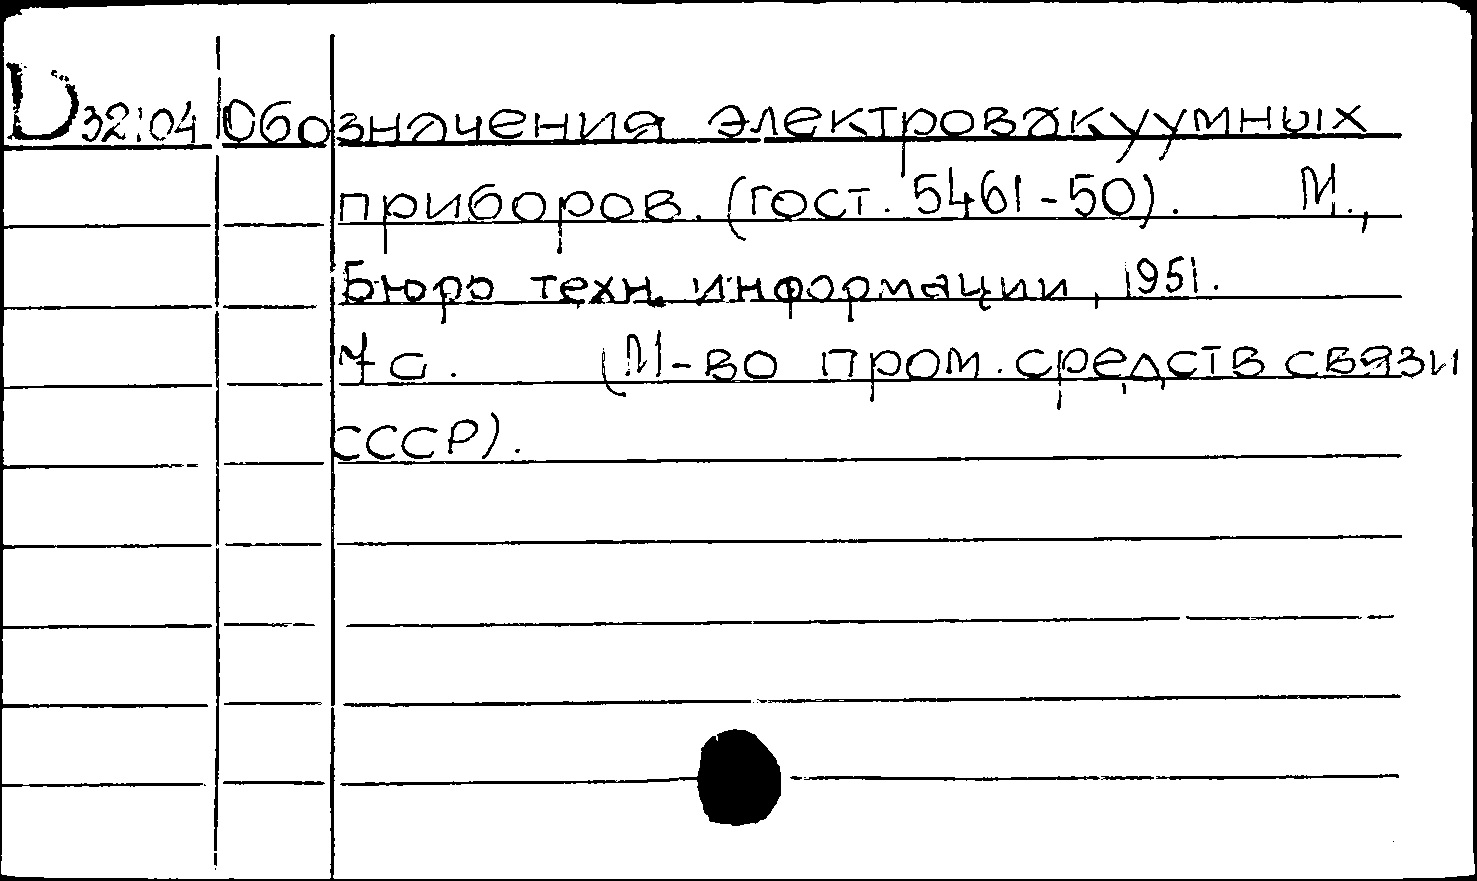 D32:04 Обозначения электровакуумных
приборов. (гост. 5461-50). М.,
Бюро техн. информации, 1951.
7 с. (М-во пром. средств связи
СССР).